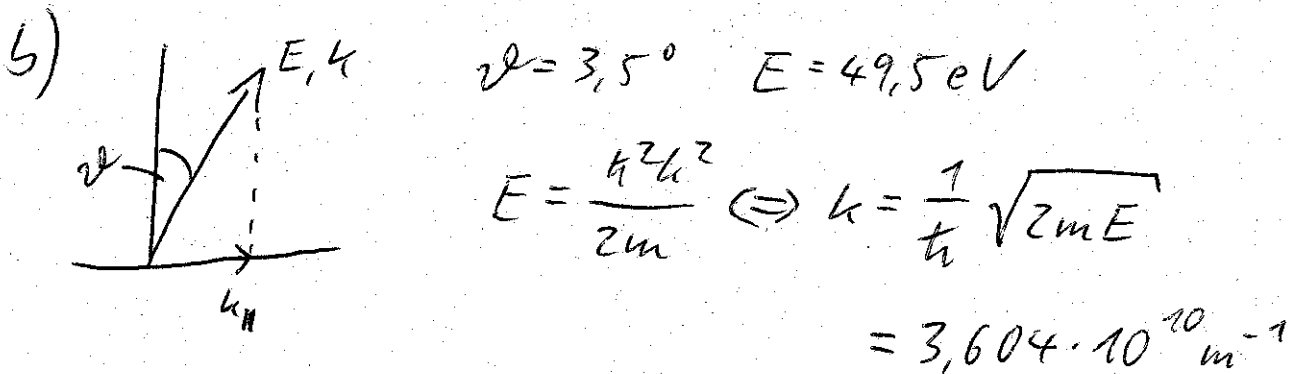 b)
E, k
ϑ = 3,5° E = 49,5 eV
ϑ
E = ħ²k²/2m ⇔ k = 1/ħ √(2mE)
k∥
= 3,604 · 10¹⁰ m⁻¹